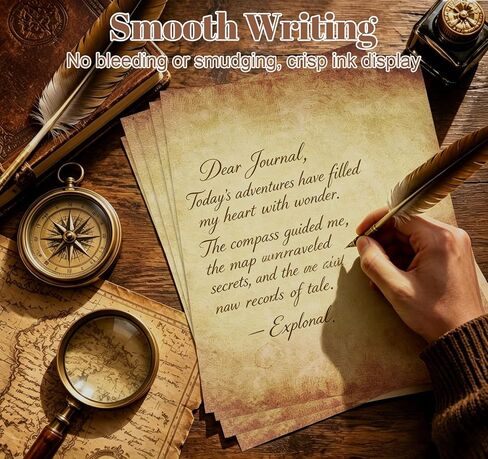 Smooth Writing
No bleeding or smudging, crisp ink display
Dear Journal,
Today's adventures have filled
my heart with wonder.
The compass guided me,
the map unraveled
secrets, and the
naw records of tale.
— Explonal.